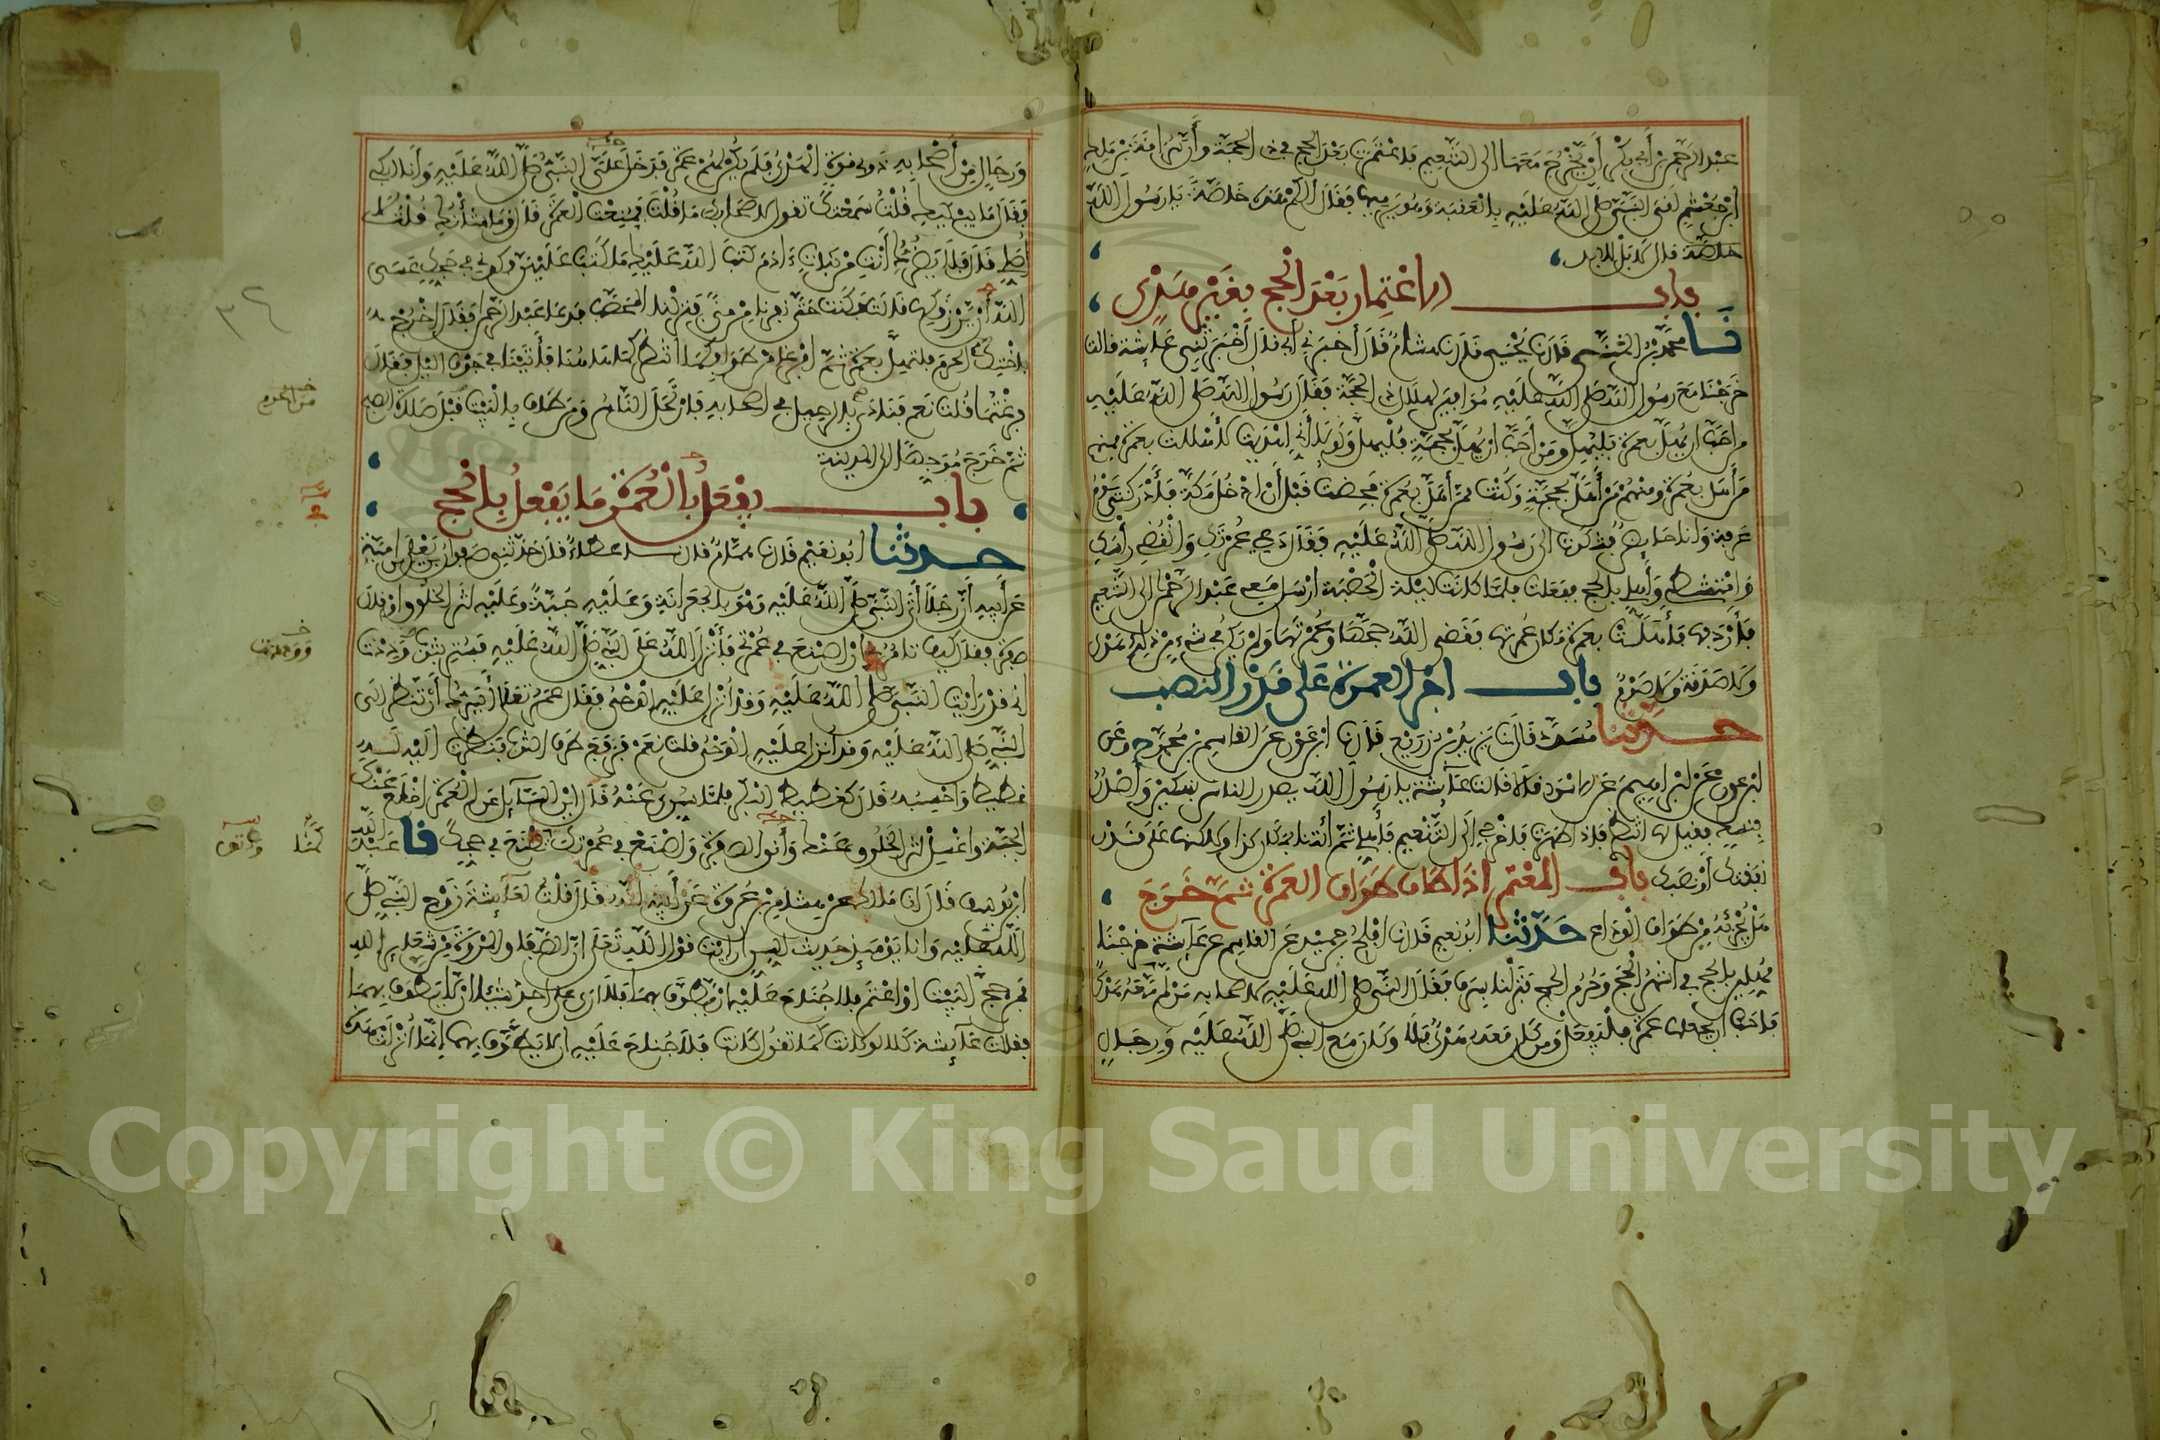 عبد الرحمن بن أبي بكر أن يخرج معها إلى التنعيم فاعتمرت بعد الحج في ذي الحجة وأن سراقة بن ملك
ابن جعشم لقي النبي صلى الله عليه بالعقبة وهو يرميها فقال ألكم هذه خاصة يا رسول الله
خاصة قال لا بل للابد
باب الاعتمار بعد الحج بغير هدي
نا محمد بن المثنى قال نا يحيى قال نا هشام قال أخبرني أبي قال أخبرتني عائشة قالت
خرجنا مع رسول الله صلى الله عليه موافين لهلال ذي الحجة فقال رسول الله صلى الله عليه
من أحب ان يهل بعمرة فليهل ومن أحب ان يهل بحجة فليهل ولولا أني اهديت لأهللت بعمرة فمنهم
من أهل بعمرة ومنهم من أهل بحجة وكنت ممن أهل بعمرة فحضت قبل أن ادخل مكة فأدركني يوم
عرفة وأنا حايض فشكوت إلى رسول الله صلى الله عليه فقال دعي عمرتك وانقضي رأسك
وامتشطي وأهلي بالحج ففعلت فلما كانت ليلة الحصبة ارسل معي عبد الرحمن إلى التنعيم
فأردفها فأهلت بعمرة مكان عمرتها فقضى الله حجها وعمرتها ولم يكن في شيء من ذلك هدي
ولا صدقة ولا صوم باب اجر العمرة على قدر النصب
حدثنا مسدد قال نا يزيد بن زريع قال نا ابن عون عن القاسم بن محمد ح وعن
ابن عون عن ابراهيم عن الاسود قالا قالت عائشة يا رسول الله يصدر الناس بنسكين وأصدر
بنسك فقيل لها انتظري فإذا طهرت فاخرجي إلى التنعيم فأهلي ثم ائتنا بمكان كذا ولكنها على قدر
نفقتك أو نصبك باب المعتمر إذا طاف طواف العمرة ثم خرج
هل يجزئه من طواف الوداع حدثنا ابو نعيم قال نا افلح بن حميد عن القاسم عن عائشة خرجنا
مهلين بالحج في اشهر الحج وحرم الحج فنزلنا بسرف فقال النبي صلى الله عليه لاصحابه من لم يكن معه هدي
فاحب ان يجعلها عمرة فليفعل ومن كان معه هدي فلا وكان مع النبي صلى الله عليه ورجال
ورجال من أصحابه ذوي قوة الهدي فلم تكن لهم عمرة فدخل علي النبي صلى الله عليه وأنا ابكي
فقال ما يبكيك قلت سمعتك تقول لاصحابك ما قلت فمنعت العمرة قال وما شأنك قلت لا
أصلي قال فلا يضرك أنت من بنات ءادم كتب الله عليك ما كتب عليهن فكوني في حجك عسى
الله أن يرزقكها قالت فكنت حتى نفرنا من منى فنزلنا المحصب فدعا عبد الرحمن فقال اخرج
باختك الحرم فلتهل بعمرة ثم افرغا من طوافكما انتظركما هاهنا فأتينا في جوف الليل فقال
فرغتما قلت نعم فنادى بالرحيل في اصحابه فارتحل الناس ومن طاف بالبيت قبل صلاة الصبح
ثم خرج موجها إلى المدينة
باب يفعل بالعمرة ما يفعل بالحج
حدثنا ابو نعيم قال نا همام قال نا عطاء قال حدثني صفوان بن يعلى بن امية
عن أبيه أن رجلا أتى النبي صلى الله عليه وهو بالجعرانة وعليه جبة وعليه اثر الخلوق او قال
صفرة فقال كيف تامرني أن اصنع في عمرتي فأنزل الله على النبي صلى الله عليه فستر بثوب ووددت
اني قد رأيت النبي صلى الله عليه وقد أنزل عليه الوحي فقال عمر تعال أيسرك أن تنظر إلى
النبي صلى الله عليه وقد أنزل عليه الوحي قلت نعم فرفع طرف الثوب فنظرت اليه له
غطيط وأحسبه قال كغطيط البكر فلما سري عنه قال اين السائل عن العمرة اخلع عنك
الجبة واغسل اثر الخلوق عنك وأنق الصفرة واصنع في عمرتك كما تصنع في حجك نا عبد الله
ابن يوسف قال انا ملك عن هشام بن عروة عن أبيه أنه قال قلت لعائشة زوج النبي صلى
الله عليه وأنا يومئذ حديث السن ارايت قول الله تعالى ان الصفا والمروة من شعاير الله
فمن حج البيت او اعتمر فلا جناح عليه ان يطوف بهما فلا ارى على احد شيئا ان لا يطوف بهما
فقالت عائشة كلا لو كانت كما تقول كانت فلا جناح عليه ان لا يطوف بهما إنما أنزلت هذه
من الحرم
ووددت